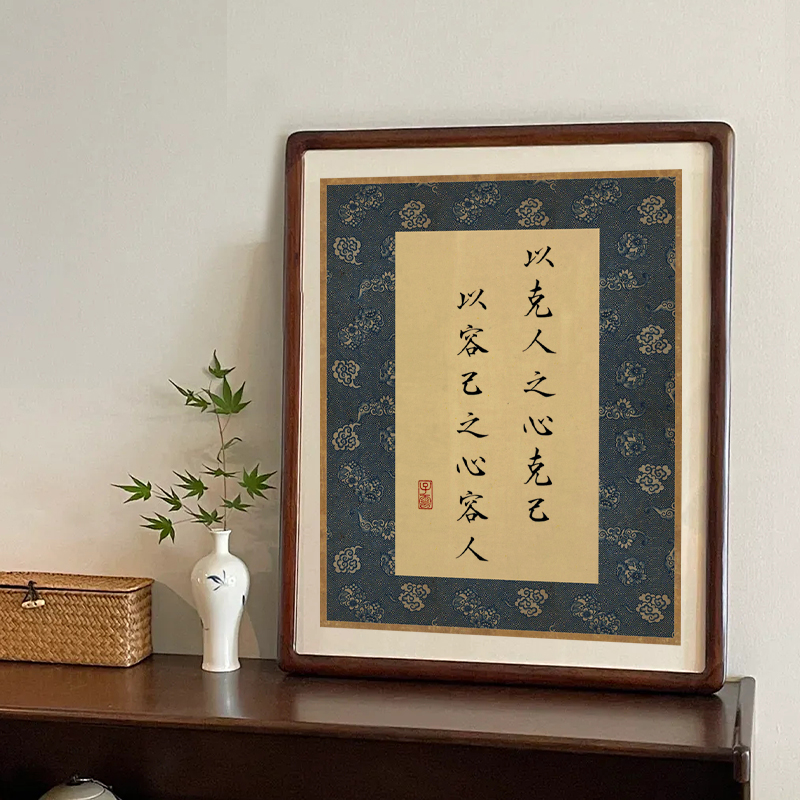 以克人之心克己
以容己之心容人